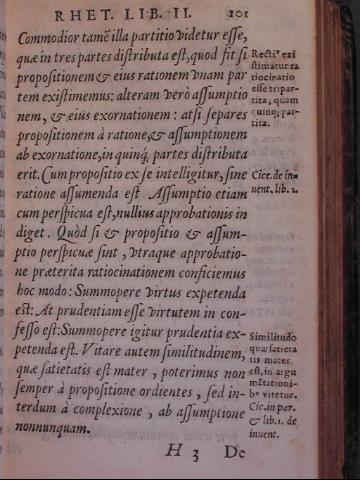 RHET. LIB. II. 101
Commodior tamẽ illa partitio videtur esse,
quæ in tres partes distributa est, quod fit si
propositionem & eius rationem vnam par
tem existimemus: alteram verò assumptio
nem, & eius exornationem: at si separes
propositionem à ratione, & assumptionem
ab exornatione, in quinq; partes distributa
erit. Cum propositio ex se intelligitur, sine
ratione assumenda est. Assumptio etiam
cum perspicua est, nullius approbationis in
diget. Quòd si & propositio & assum-
ptio perspicuæ sint, vtraque approbatio-
ne præterita ratiocinationem conficiemus
hoc modo: Summopere virtus expetenda
est: At prudentiam esse virtutem in con-
fesso est: Summopere igitur prudentia ex-
petenda est. Vitare autem similitudinem,
quæ satietatis est mater, poterimus non
semper à propositione ordientes, sed in-
terdum à complexione, ab assumptione
nonnunquam.
H 3 De
Rectiº exi
stimatur ra
tiocinatio
esse tripar-
tita, quam
quinq; par-
tita.
Cice. de in-
uent. lib. 1.
Similitudo
quæ satieta
tis mater
est, in argu
mẽtationi-
bº vitetur.
Cic. in par.
& lib. 1. de
inuent.